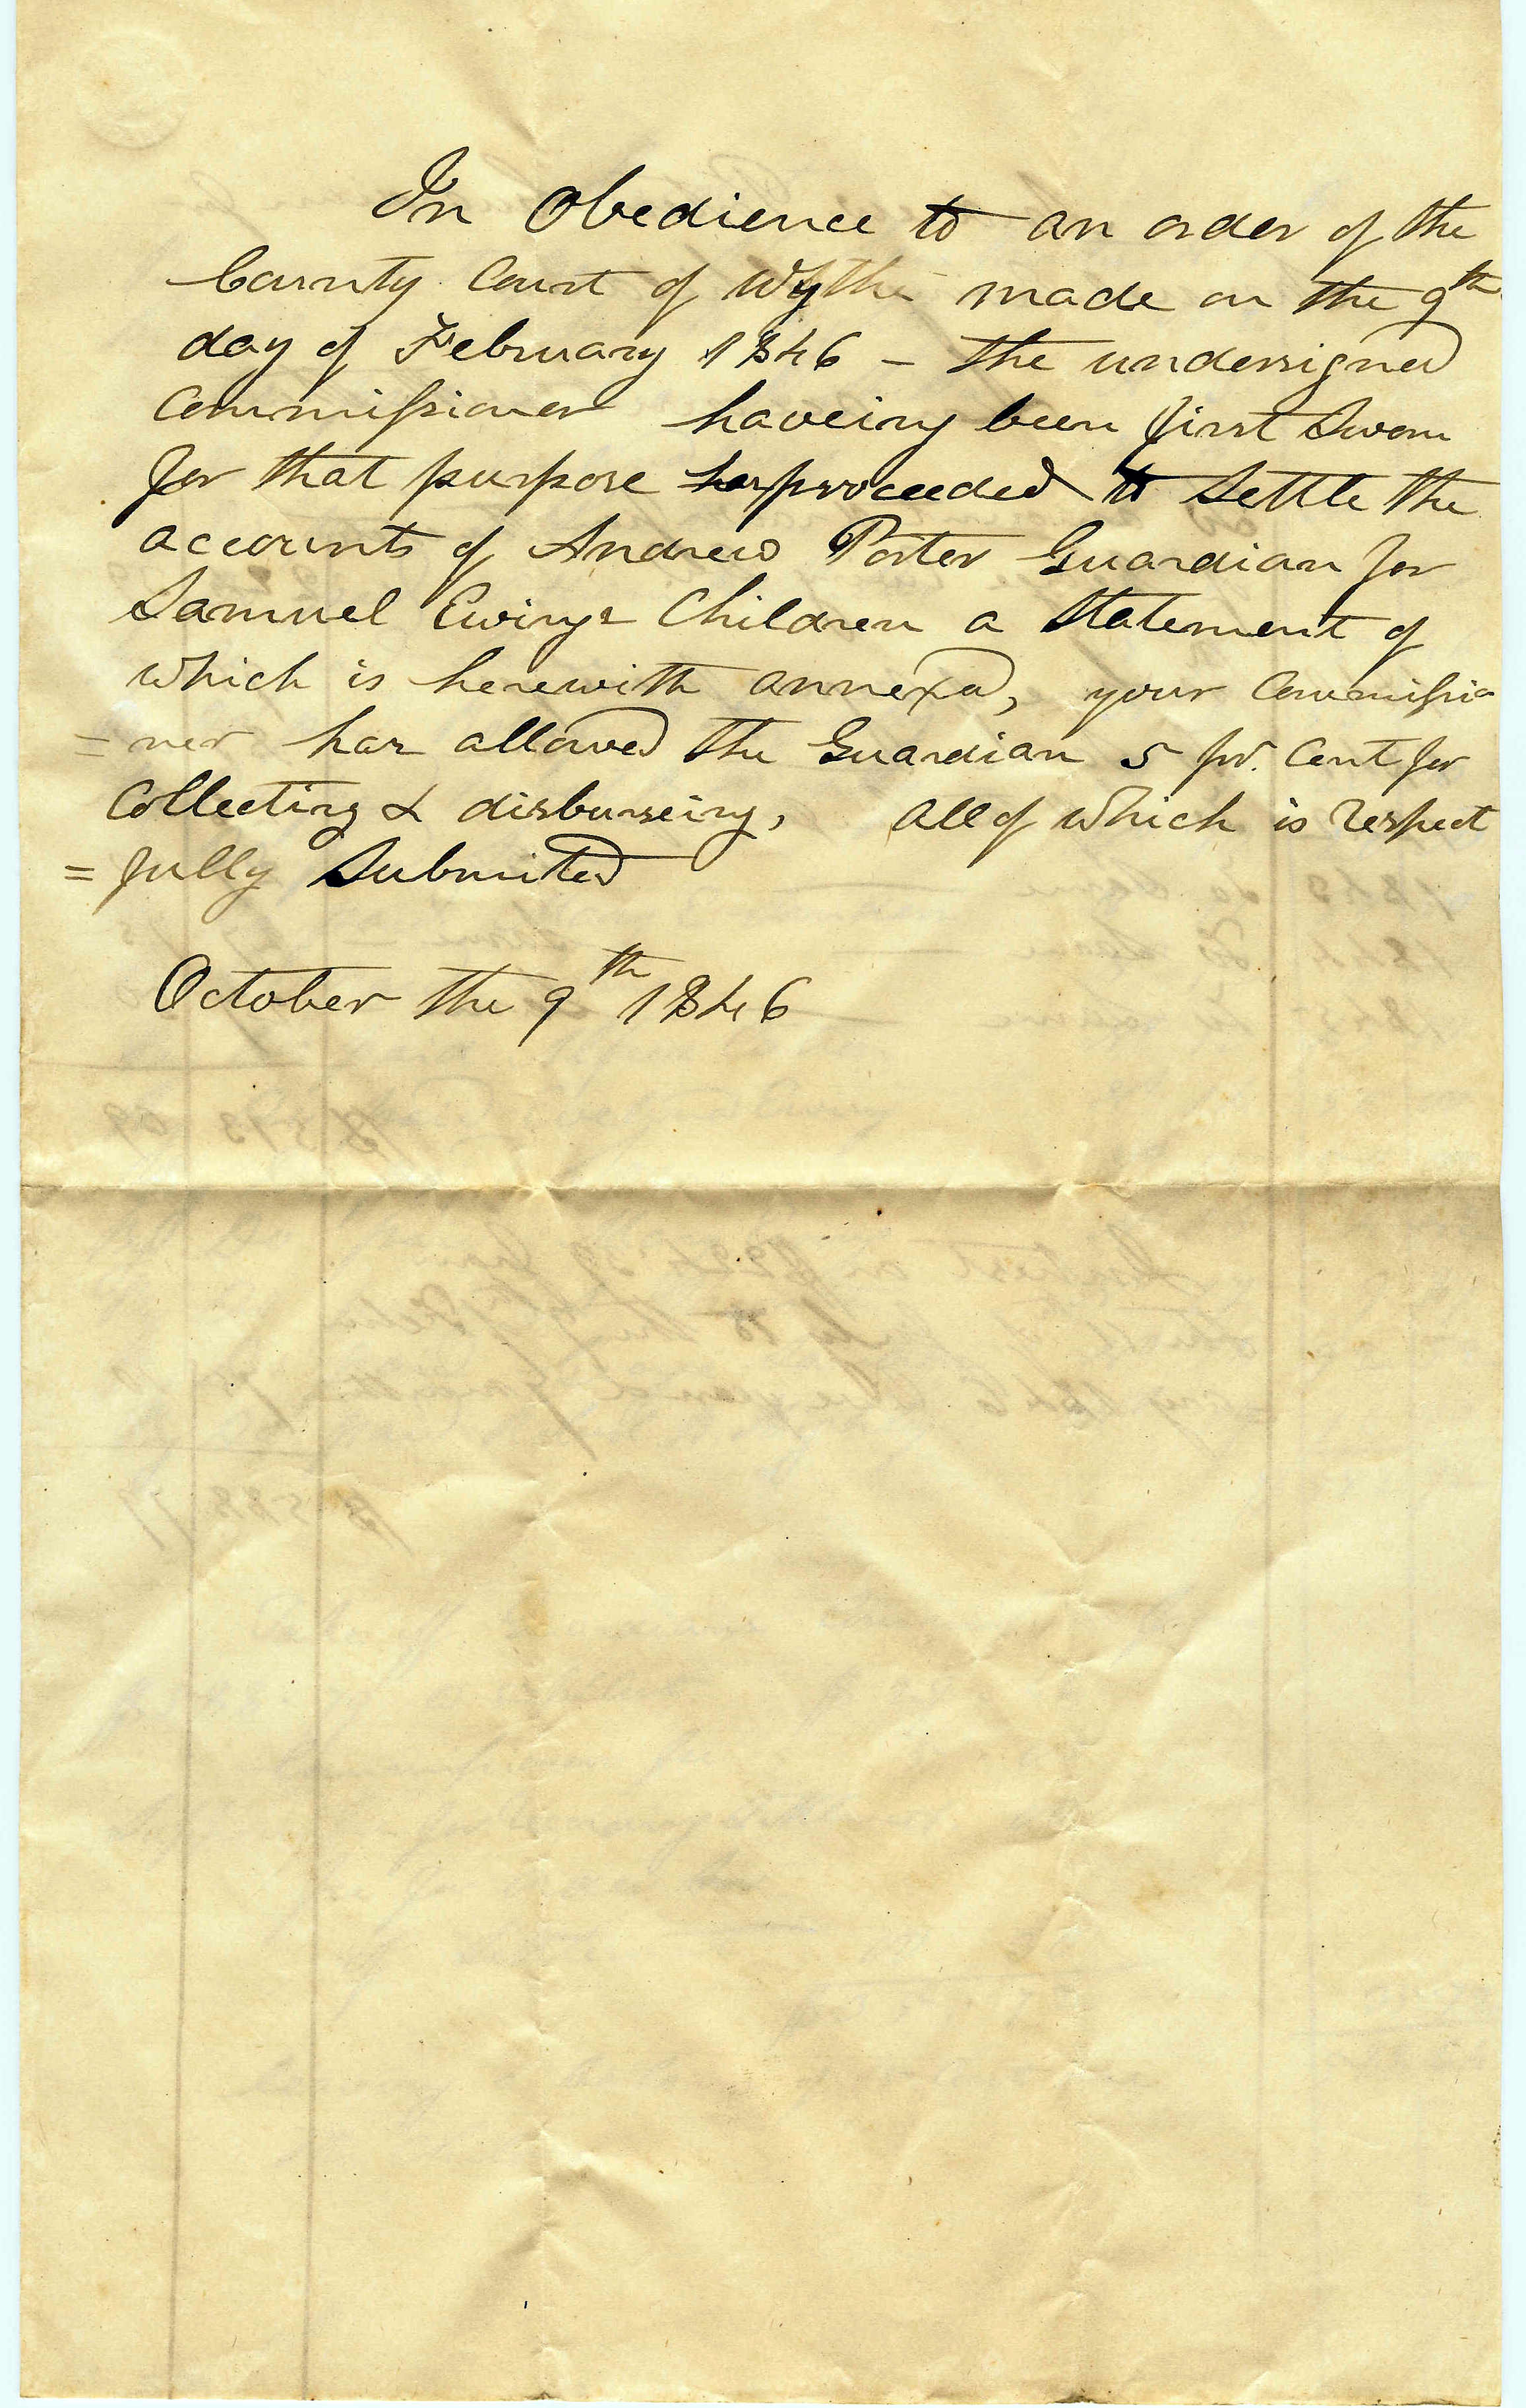 In Obedience to an order of the
County Court of Wythe made on the 9th
day of February 1846 – the undersigned
Commissioner haveing been first Sworn
for that purpose has proceeded to Settle the
accounts of Andrew Porter Guardian for
Samuel Ewings Children a Statement of
which is herewith annexed, your Commissio
= ner has allowed the Guardian 5 pr. Cent for
Collecting & disburseing, all of which is respect
= fully Submited
October the 9th 1846